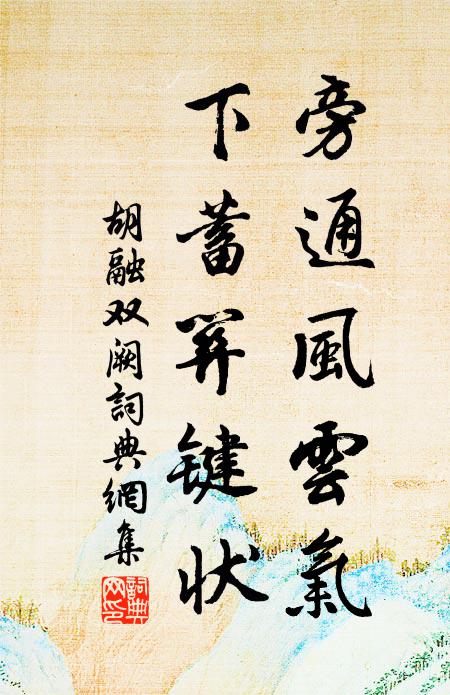 旁通風雲氣
下蓄關鍵狀
胡融双闕詞典網集
詞典
网印